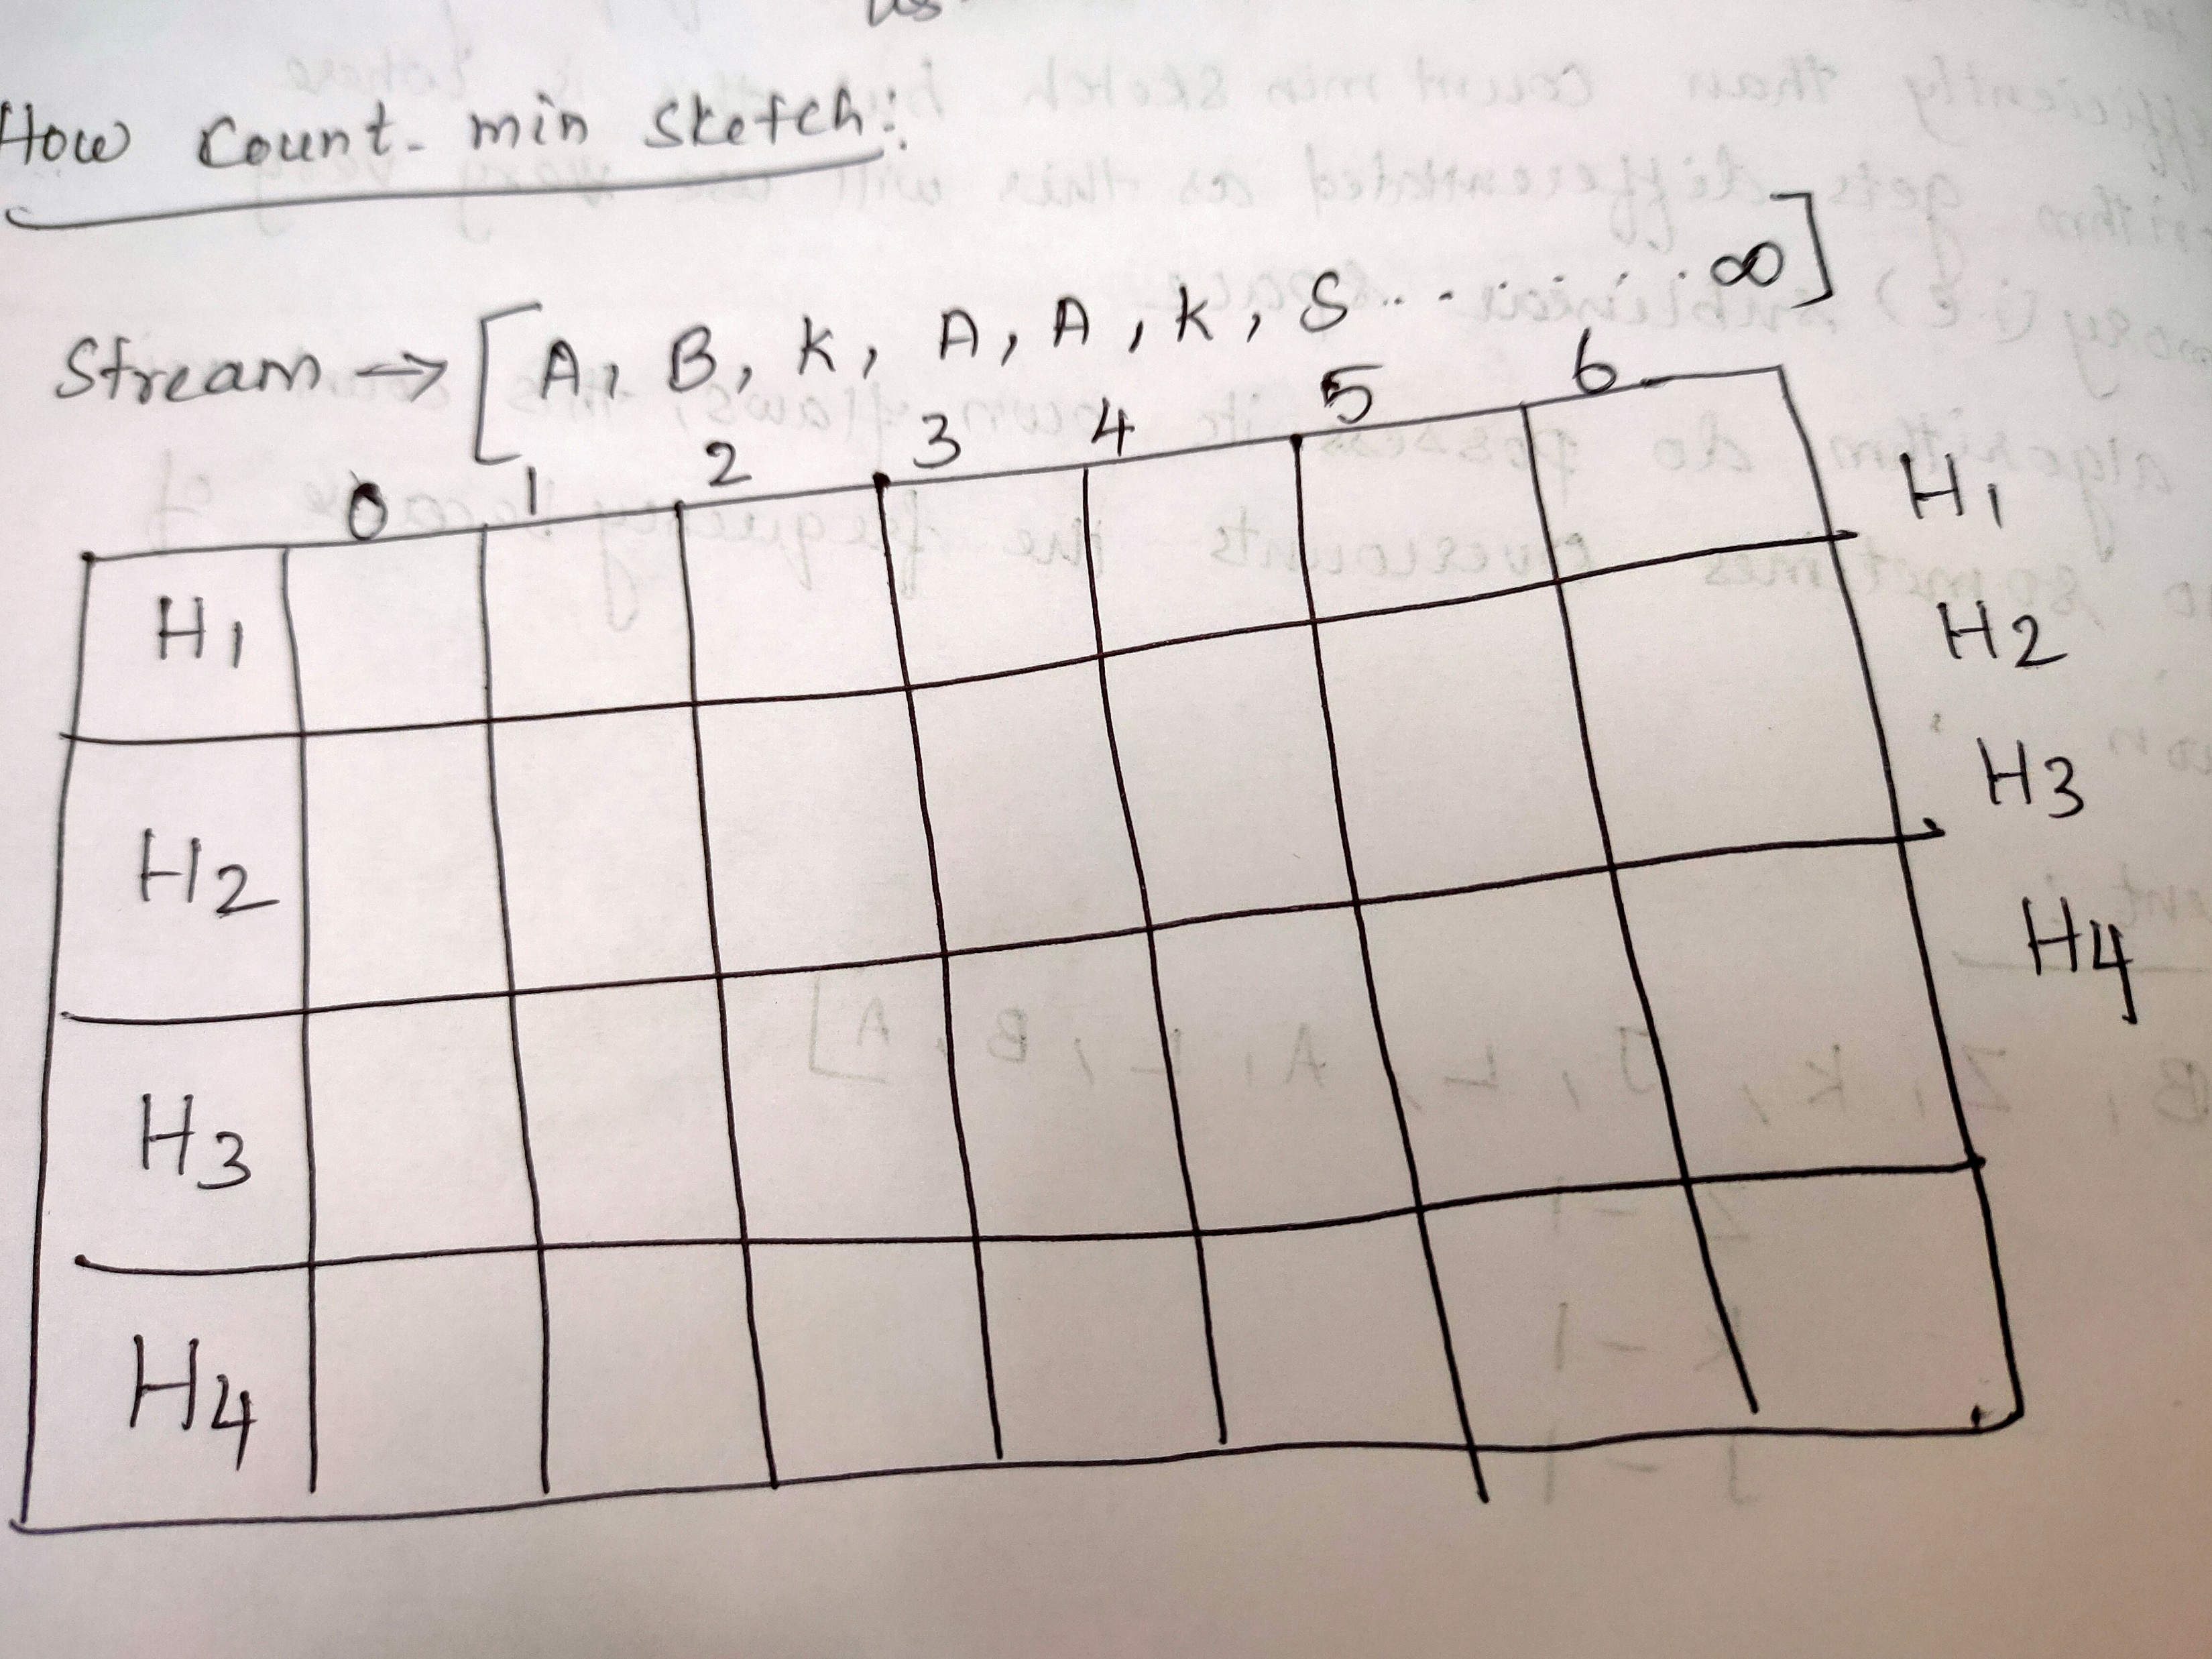 How Count-min Sketch:
Stream → [A, B, K, A, A, K, S........∞]
0 1 2 3 4 5 6
H1 H1
H2 H2
H3 H3
H4 H4